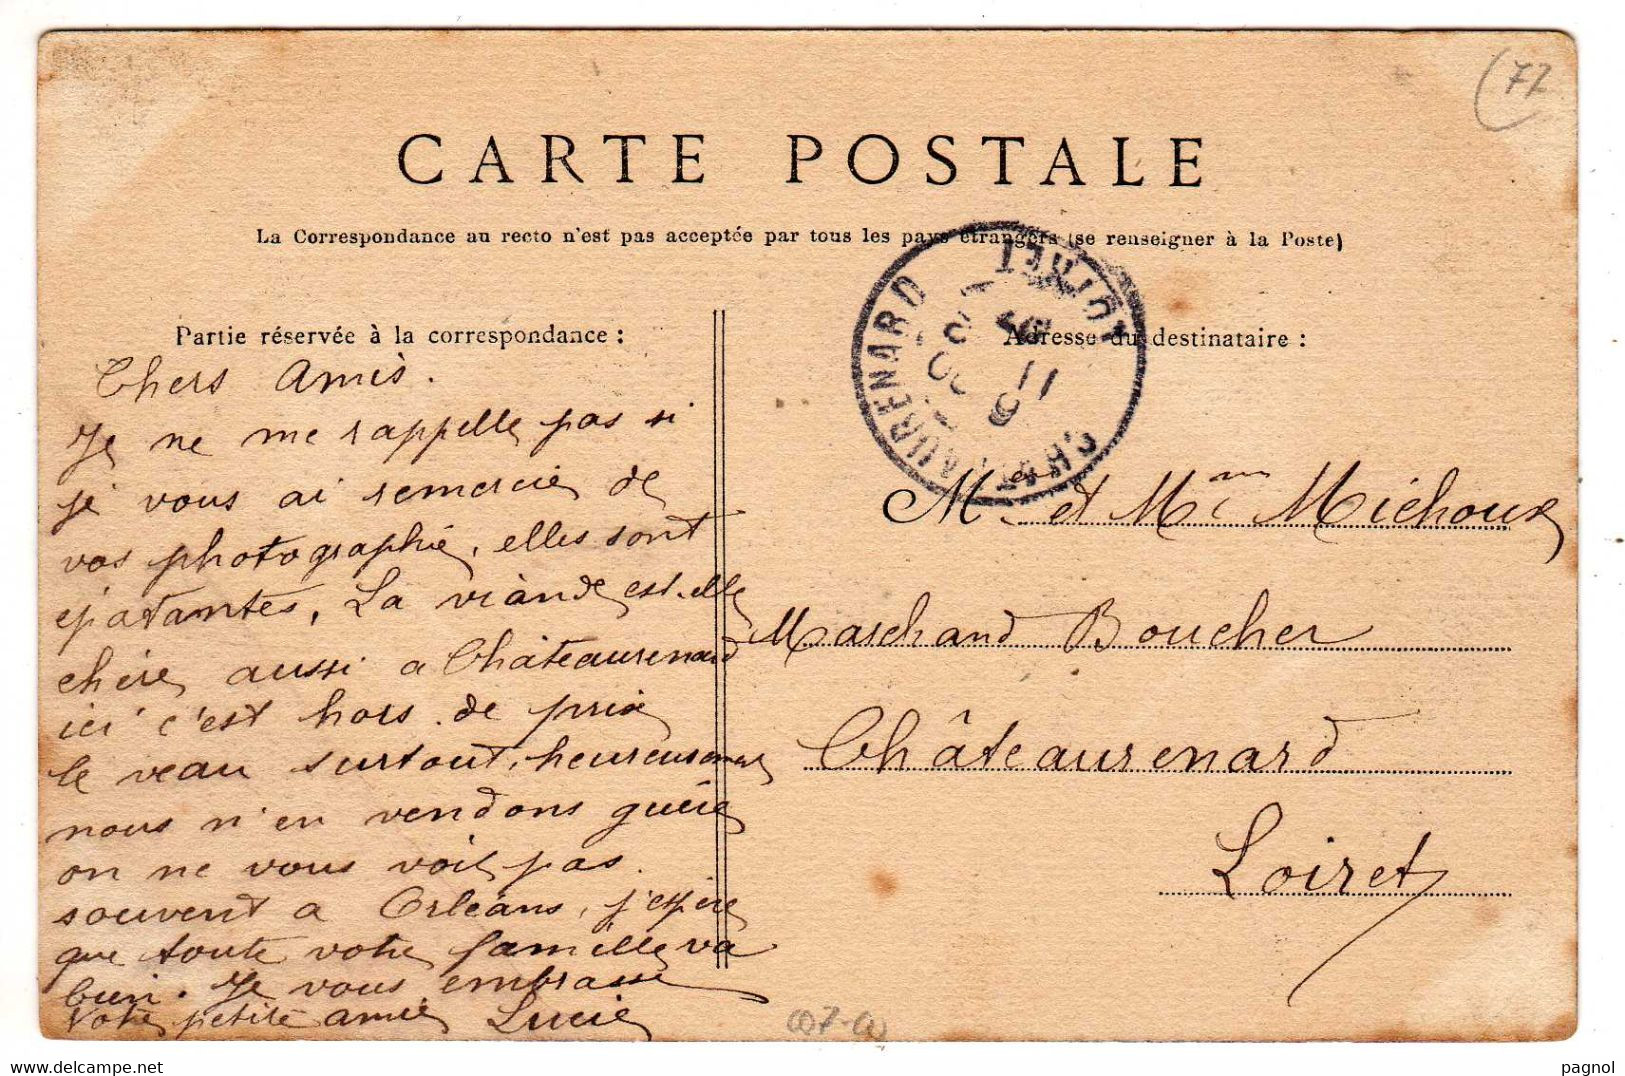 (72
CARTE POSTALE
La Correspondance au recto n'est pas acceptée par tous les pays étrangers (se renseigner à la Poste)
Partie réservée à la correspondance :
Chers Amis.
Je ne me rappelle pas si
je vous ai remercié de
vos photographie, elles sont
épatantes, La viande est-elle
chère aussi a Châteaurenard
ici c'est hors de prix
le veau surtout, heureusement
nous n'en vendons guère
on ne vous voit pas
souvent a Orléans, j'espère
que toute votre famille va
bien. Je vous embrasse
Votre petite amie Lucie
CHATEAURENARD
LOIRET
Adresse du destinataire :
Mr et Mme Michoux
Marchand Boucher
Châteaurenard
Loiret
pagnol